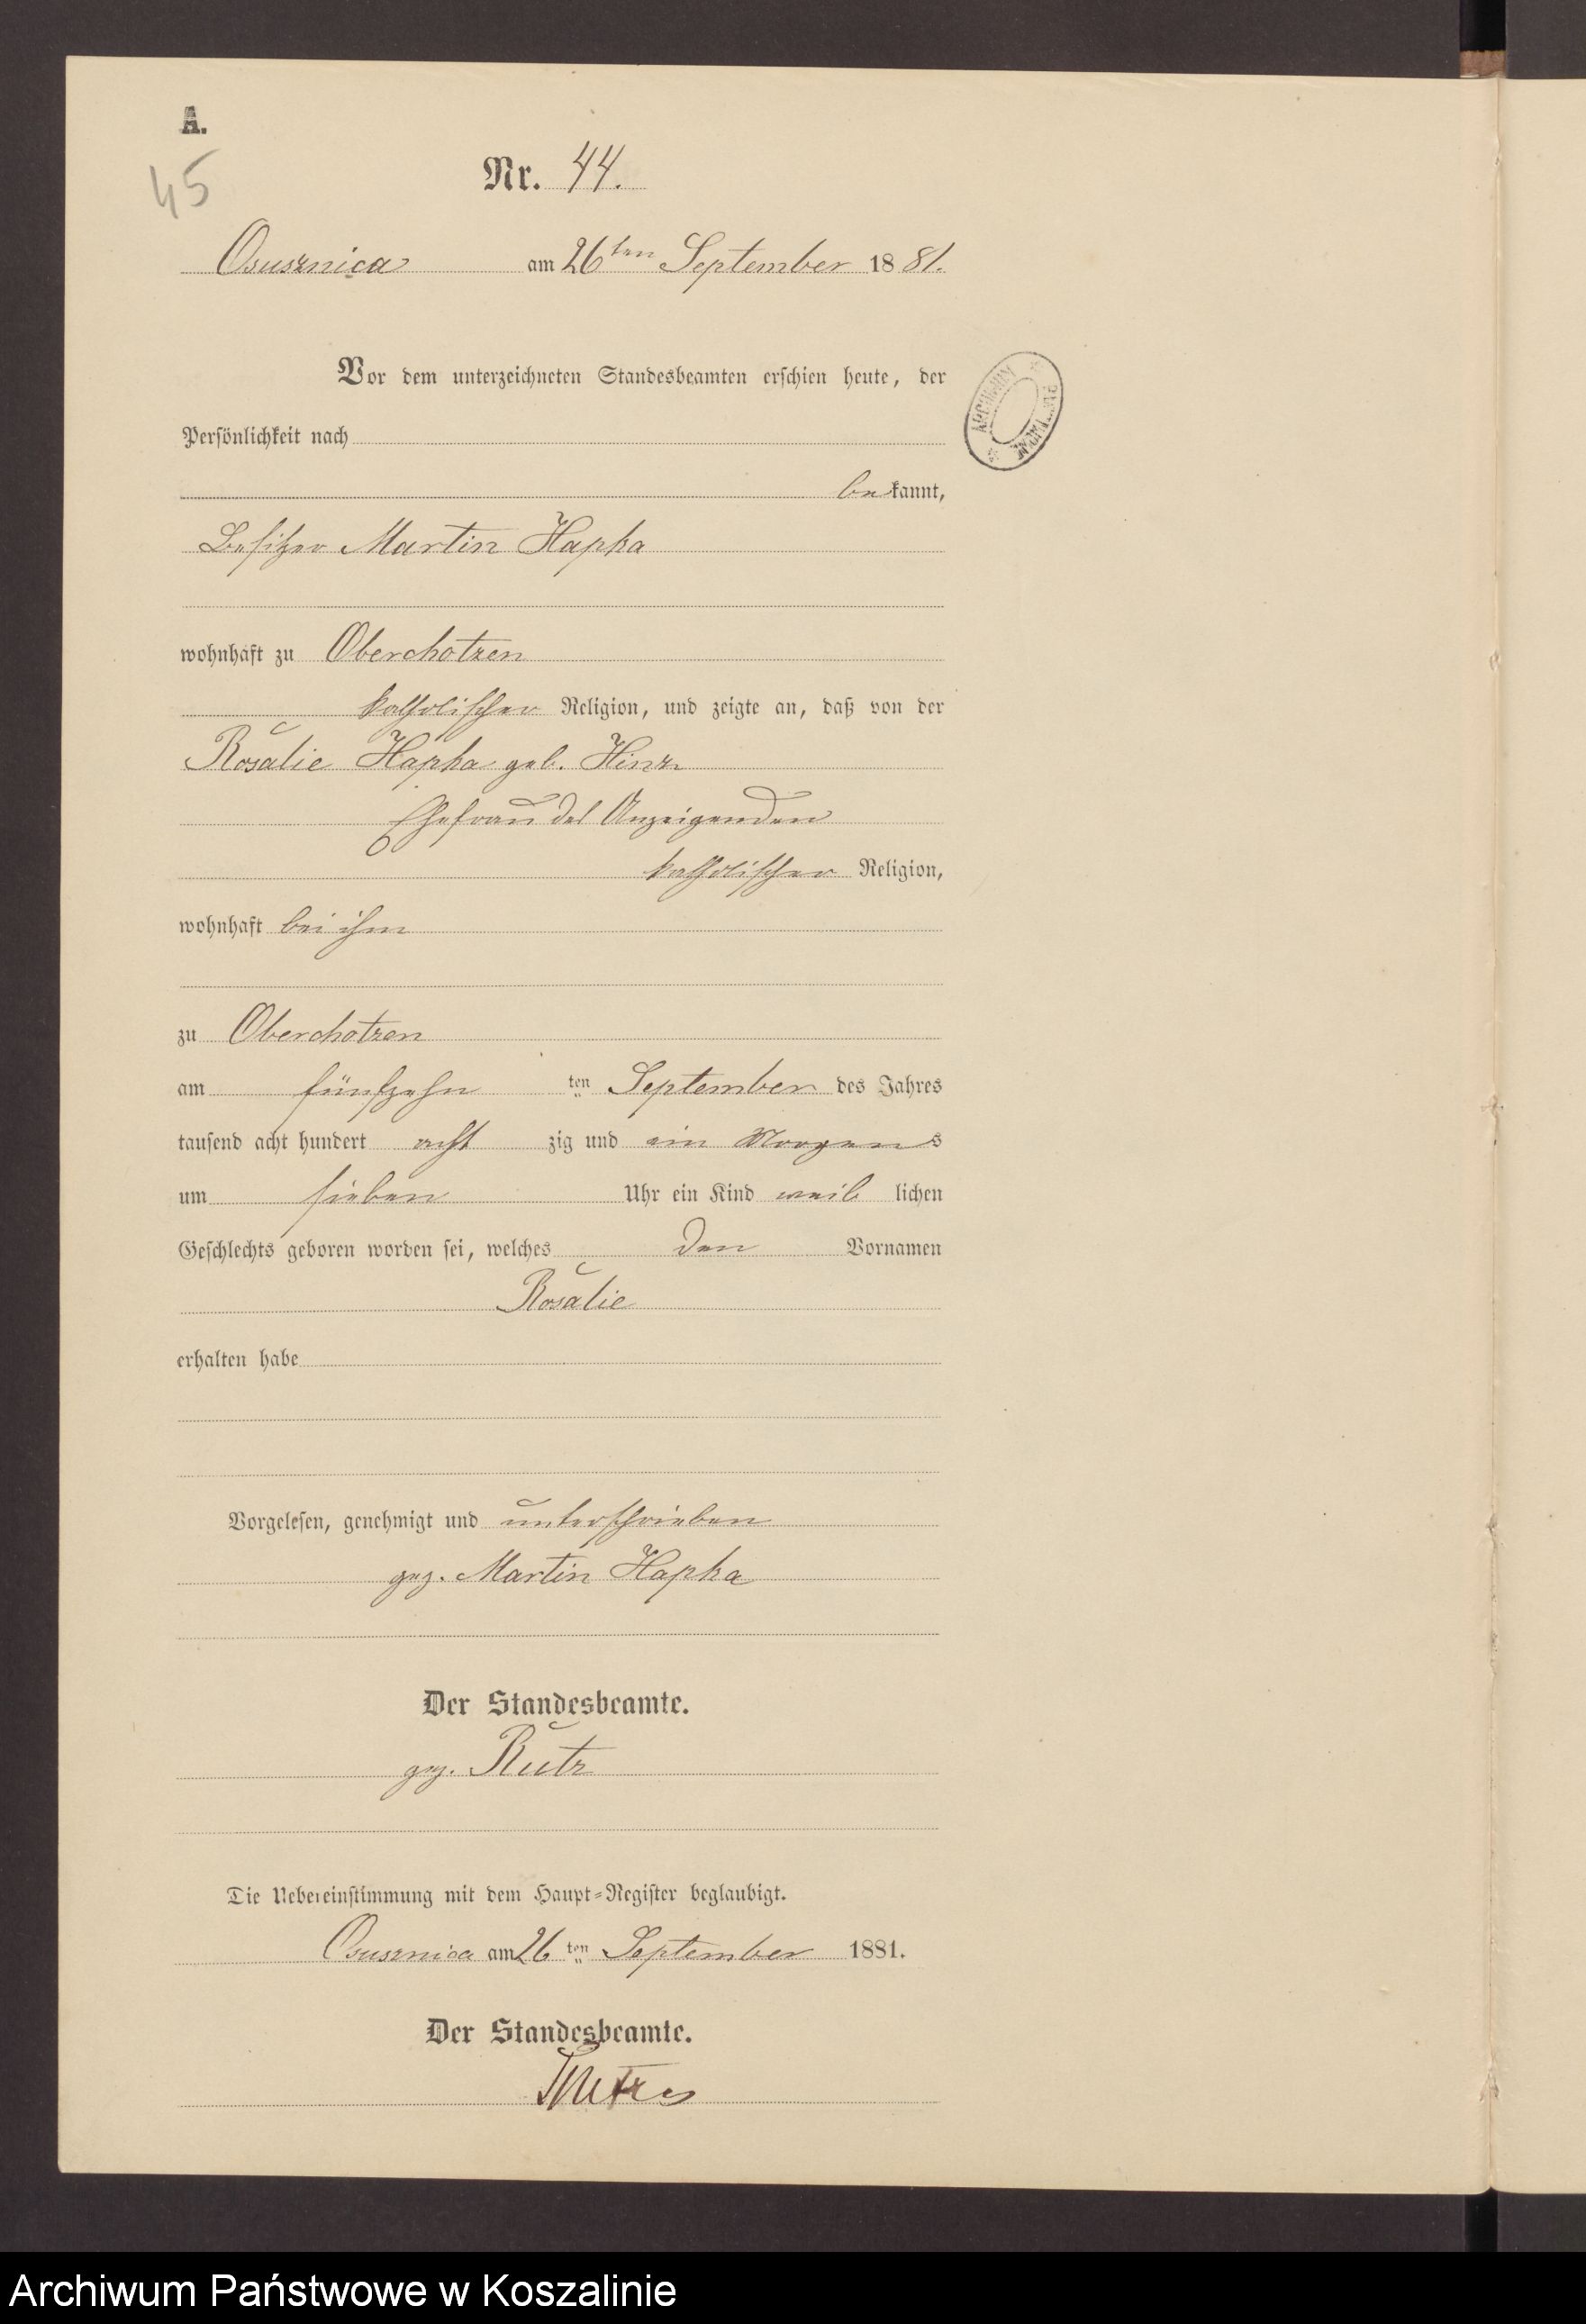 A.
45
Nr. 44.
Osusznica am 26ten September 1881.
Vor dem unterzeichneten Standesbeamten erschien heute, der
Persönlichkeit nach
bekannt,
Besitzer Martin Hapka
wohnhaft zu Oberchotzen
katholischer Religion, und zeigte an, daß von der
Rosalie Hapka geb. Hinz
Ehefrau des Anzeigenden
katholischer Religion,
wohnhaft bei ihm
zu Oberchotzen
am fünfzehn ten September des Jahres
tausend acht hundert acht zig und ein Morgens
um sieben Uhr ein Kind weiblichen
Geschlechts geboren worden sei, welches den Vornamen
Rosalie
erhalten habe
Vorgelesen, genehmigt und unterschrieben
gez. Martin Hapka
Der Standesbeamte.
gez. Rutz
Die Uebereinstimmung mit dem Haupt-Register beglaubigt.
Osusznica am 26 ten September 1881.
Der Standesbeamte.
ARCHIWUM
Archiwum Państwowe w Koszalinie